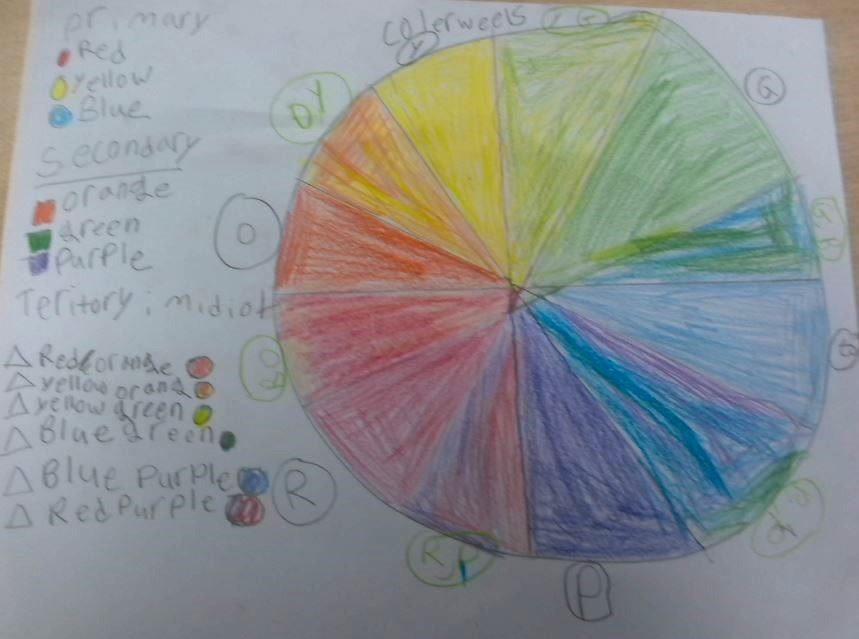 primary
Red
yellow
Blue
Secondary
orange
green
purple
Teritory : midiot
Red orange
yellow orang
yellow green
Blue green
Blue Purple
Red Purple
colerweels
Y
Y G
G
OY
O
R
RP
P